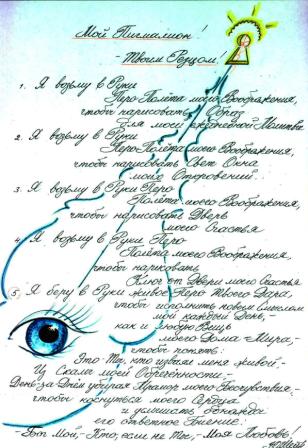 Мой Пигмалион!
- Твоим Резцом!
1. Я возьму в Руки
Перо Полёта моего Воображения,
чтобы нарисовать Образ
для моей ежедневной Молитвы
2. Я возьму в Руки
Перо Полёта моего Воображения,
чтобы нарисовать Свет Окна
моих Откровений.
3. Я возьму в Руки Перо
Полёта моего Воображения,
чтобы нарисовать Дверь
моего Счастья
4. Я возьму в Руки Перо
Полёта моего Воображения,
чтобы нарисовать
Ключ от Двери моего Счастья
5. Я беру в Руки живое Перо Твоего Дара,
чтобы исполнить новым Смыслом
мой каждый День, -
как и любую Вещь
моего Дома = Мира, -
чтобы понять:
Это Ты, что изрываешь меня живой, -
Из Скалы моей Обречённости, -
День за Днём убирая Мрамор моего Бесчувствия, -
чтобы коснуться моего Сердца
и услышать однажды
его ответное Биение:
- Бог Мой, - Кто, если не Ты, - Моя Любовь,